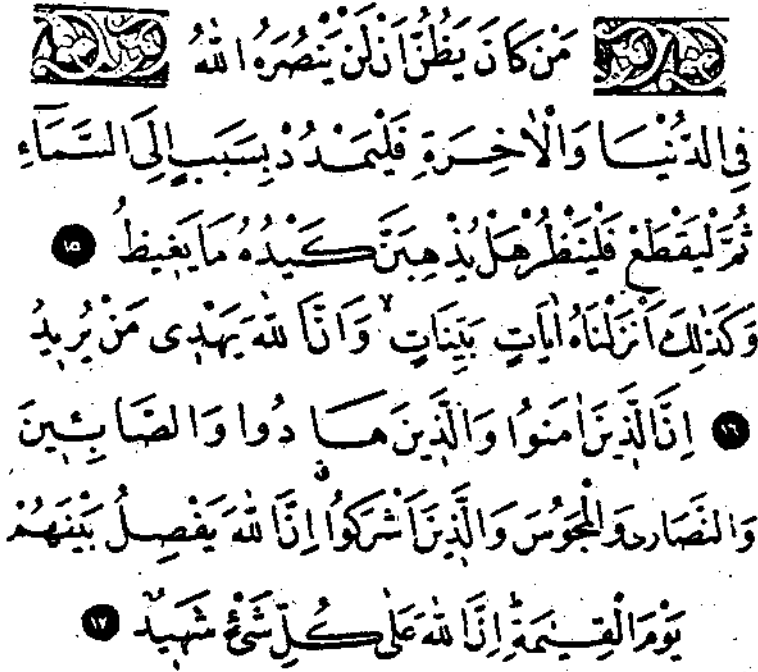 مَنْ كَانَ يَظُنُّ اَنْ لَنْ يَنْصُرَهُ اللّٰهُ
فِى الدُّنْيَا وَالْاٰخِرَةِ فَلْيَمْدُدْ بِسَبَبٍ اِلَى السَّمَٓاءِ
ثُمَّ لْيَقْطَعْ فَلْيَنْظُرْ هَلْ يُذْهِبَنَّ كَيْدُهُ مَا يَغِيظُ ١٥
وَكَذٰلِكَ اَنْزَلْنَاهُ اٰيَاتٍ بَيِّنَاتٍ ۙ وَاَنَّ اللّٰهَ يَهْدِى مَنْ يُرِيدُ
١٦ اِنَّ الَّذِينَ اٰمَنُوا وَالَّذِينَ هَادُوا وَالصَّابِئِينَ
وَالنَّصَارٰى وَالْمَجُوسَ وَالَّذِينَ اَشْرَكُوا ۗ اِنَّ اللّٰهَ يَفْصِلُ بَيْنَهُمْ
يَوْمَ الْقِيٰمَةِ ۜ اِنَّ اللّٰهَ عَلٰى كُلِّ شَىْءٍ شَهِيدٌ ١٧